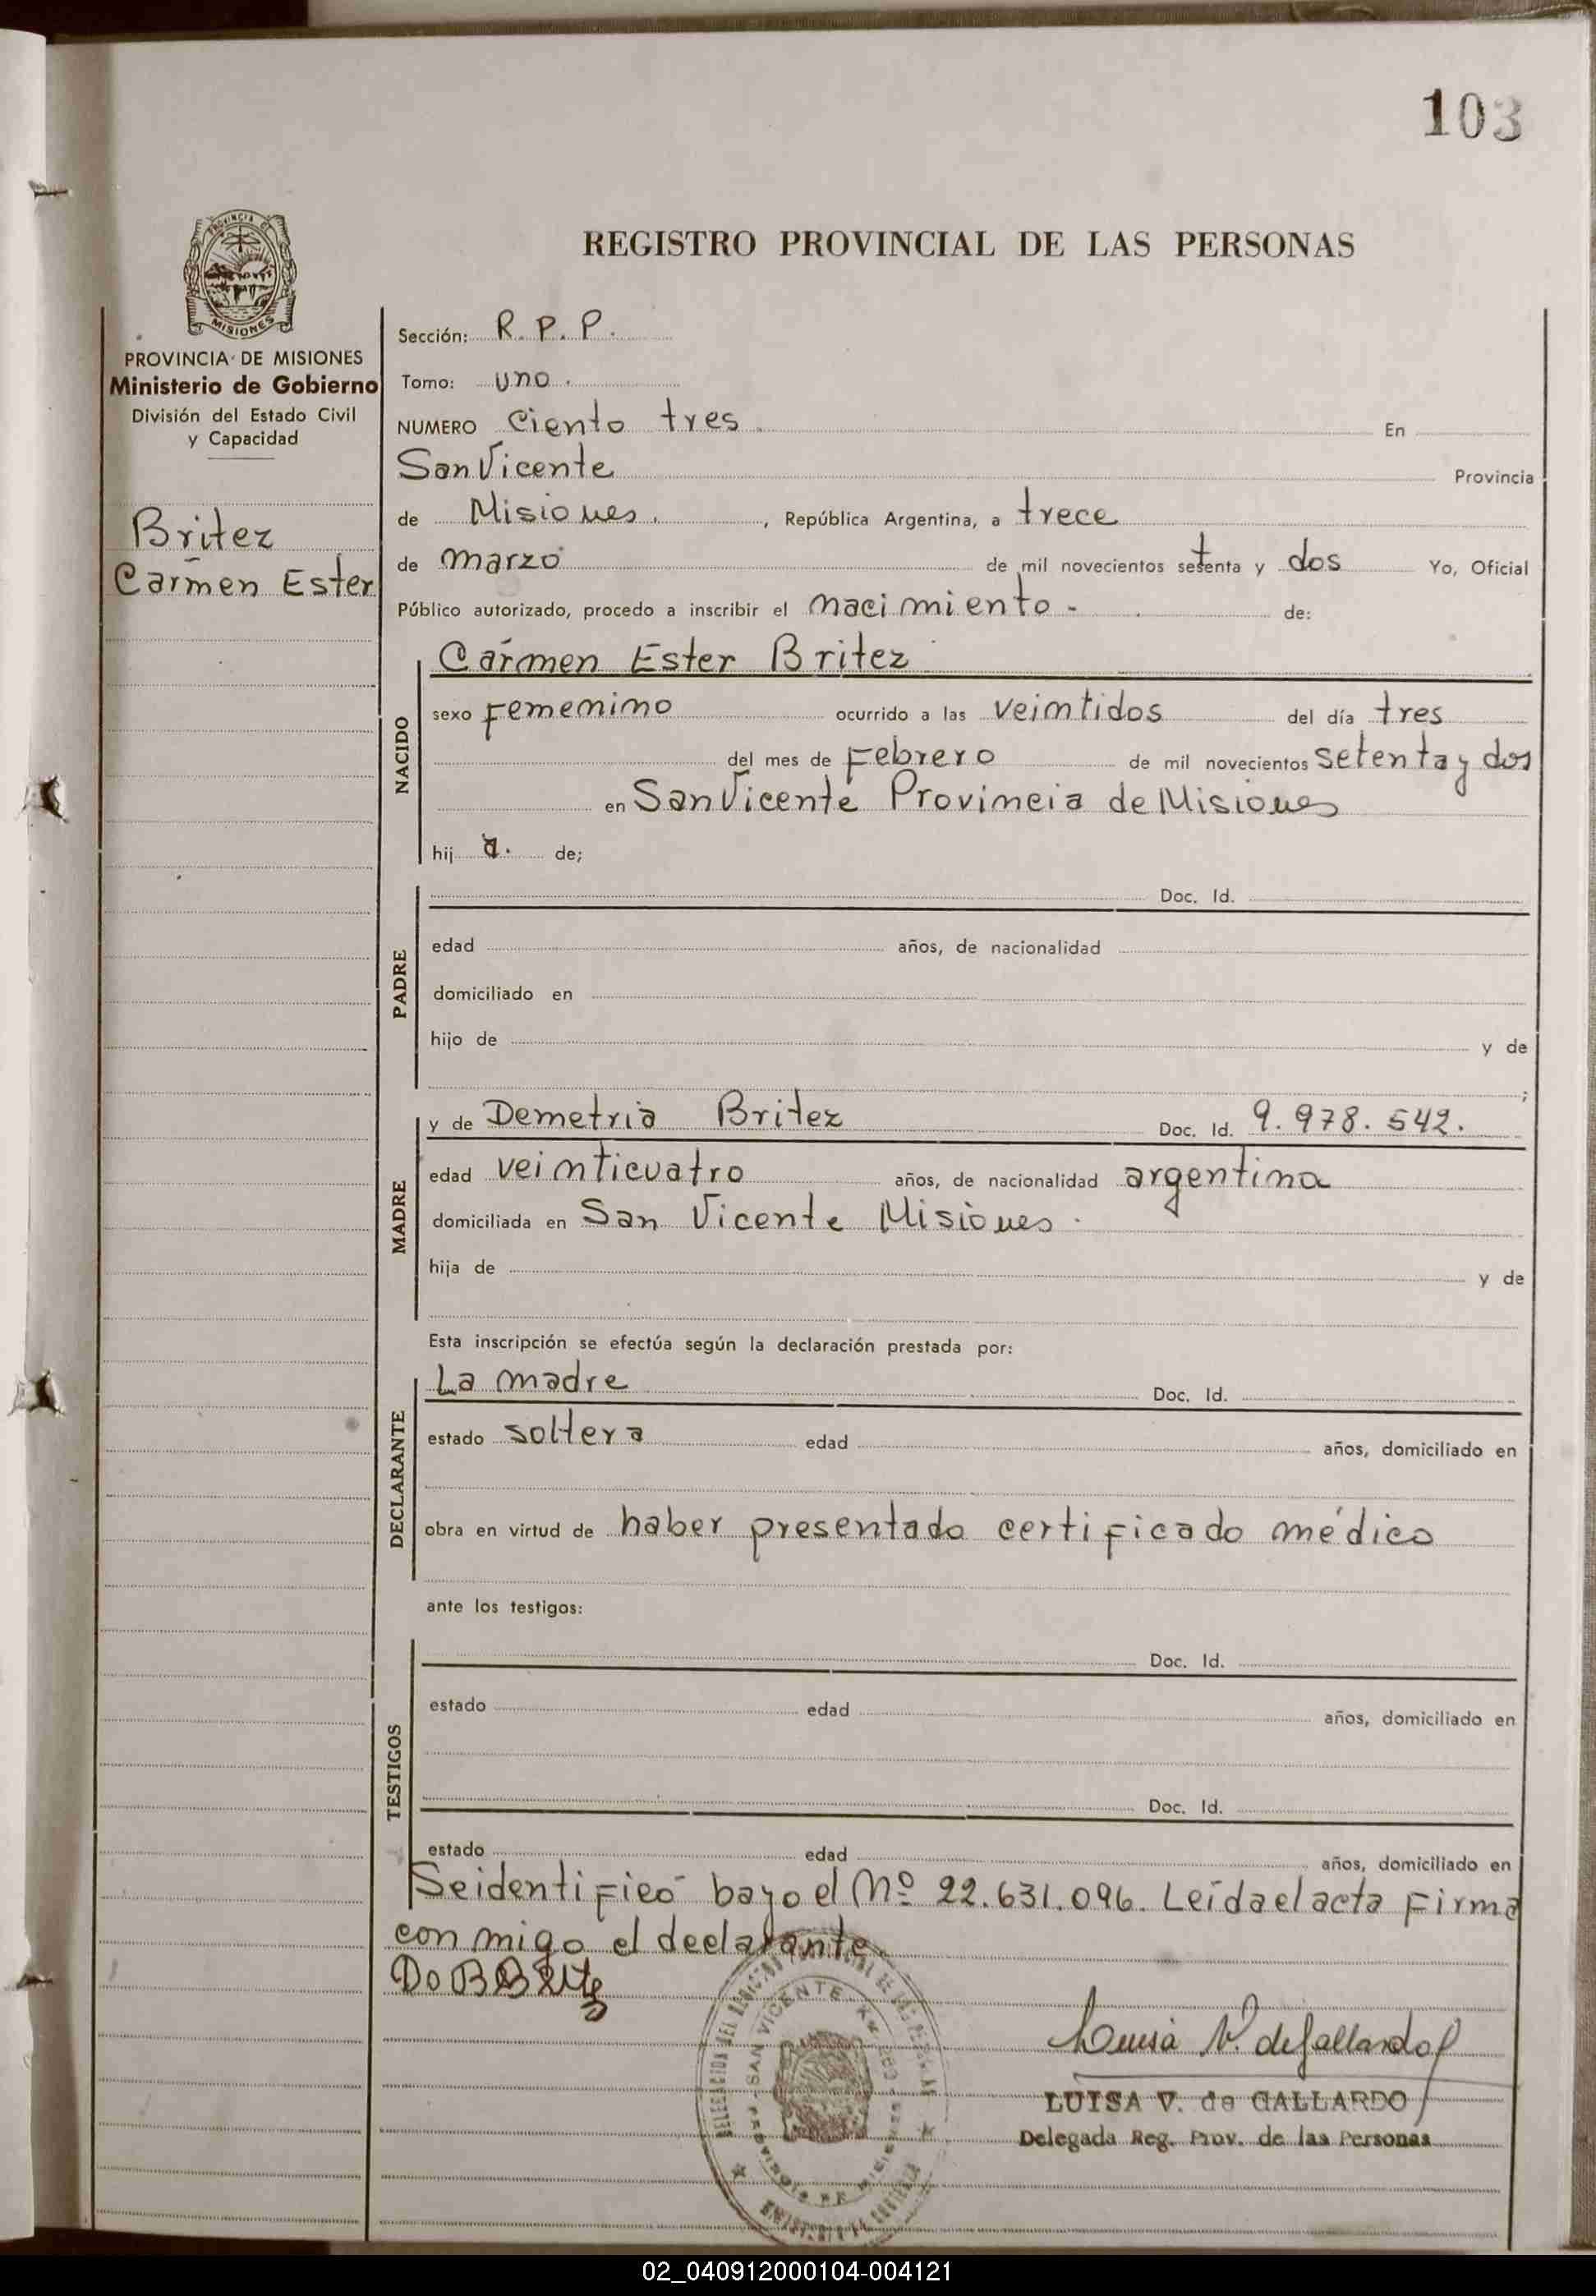 103
PROVINCIA DE
MISIONES
REGISTRO PROVINCIAL DE LAS PERSONAS
PROVINCIA DE MISIONES
Ministerio de Gobierno
División del Estado Civil
y Capacidad
Britez
Carmen Ester
Sección: R. P. P.
Tomo: uno.
NUMERO Ciento tres. En
San Vicente Provincia
de Misiones, , República Argentina, a trece
de marzo de mil novecientos setenta y dos Yo, Oficial
Público autorizado, procedo a inscribir el nacimiento - de:
NACIDO
Carmen Ester Britez
sexo Femenino ocurrido a las veintidos del día tres
del mes de Febrero de mil novecientos setenta y dos
en San Vicente Provincia de Misiones
hij a. de;
PADRE
Doc. Id.
edad años, de nacionalidad
domiciliado en
hijo de y de
;
MADRE
y de Demetria Britez Doc. Id. 9.978.542.
edad veinticuatro años, de nacionalidad argentina
domiciliada en San Vicente Misiones.
hija de y de
Esta inscripción se efectúa según la declaración prestada por:
DECLARANTE
La madre Doc. Id.
estado soltera edad años, domiciliado en
obra en virtud de haber presentado certificado médico
ante los testigos:
TESTIGOS
Doc. Id.
estado edad años, domiciliado en
Doc. Id.
estado edad años, domiciliado en
Se identificó bayo el Nº 22.631.096. Leída el acta Firma
con migo el declarante.
Luisa V. de Gallardo
LUISA V. de GALLARDO
Delegada Reg. Prov. de las Personas
SAN VICENTE
02_040912000104-004121